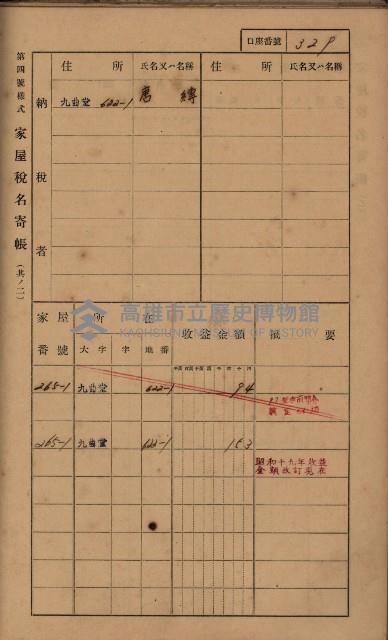 口座番號 329
第四號樣式 家屋稅名寄帳 (其ノ二)
納稅者
住所 氏名又ハ名稱 住所 氏名又ハ名稱
九曲堂 622-1
家屋番號 所在 收益金額 摘要
大字 字 地番
高雄市立歷史博物館
KAOHSIUNG MUSEUM OF HISTORY
265-1 九曲堂 622-1 94
265-1 九曲堂 622-1 153
昭和十九年收益
金額改訂現在